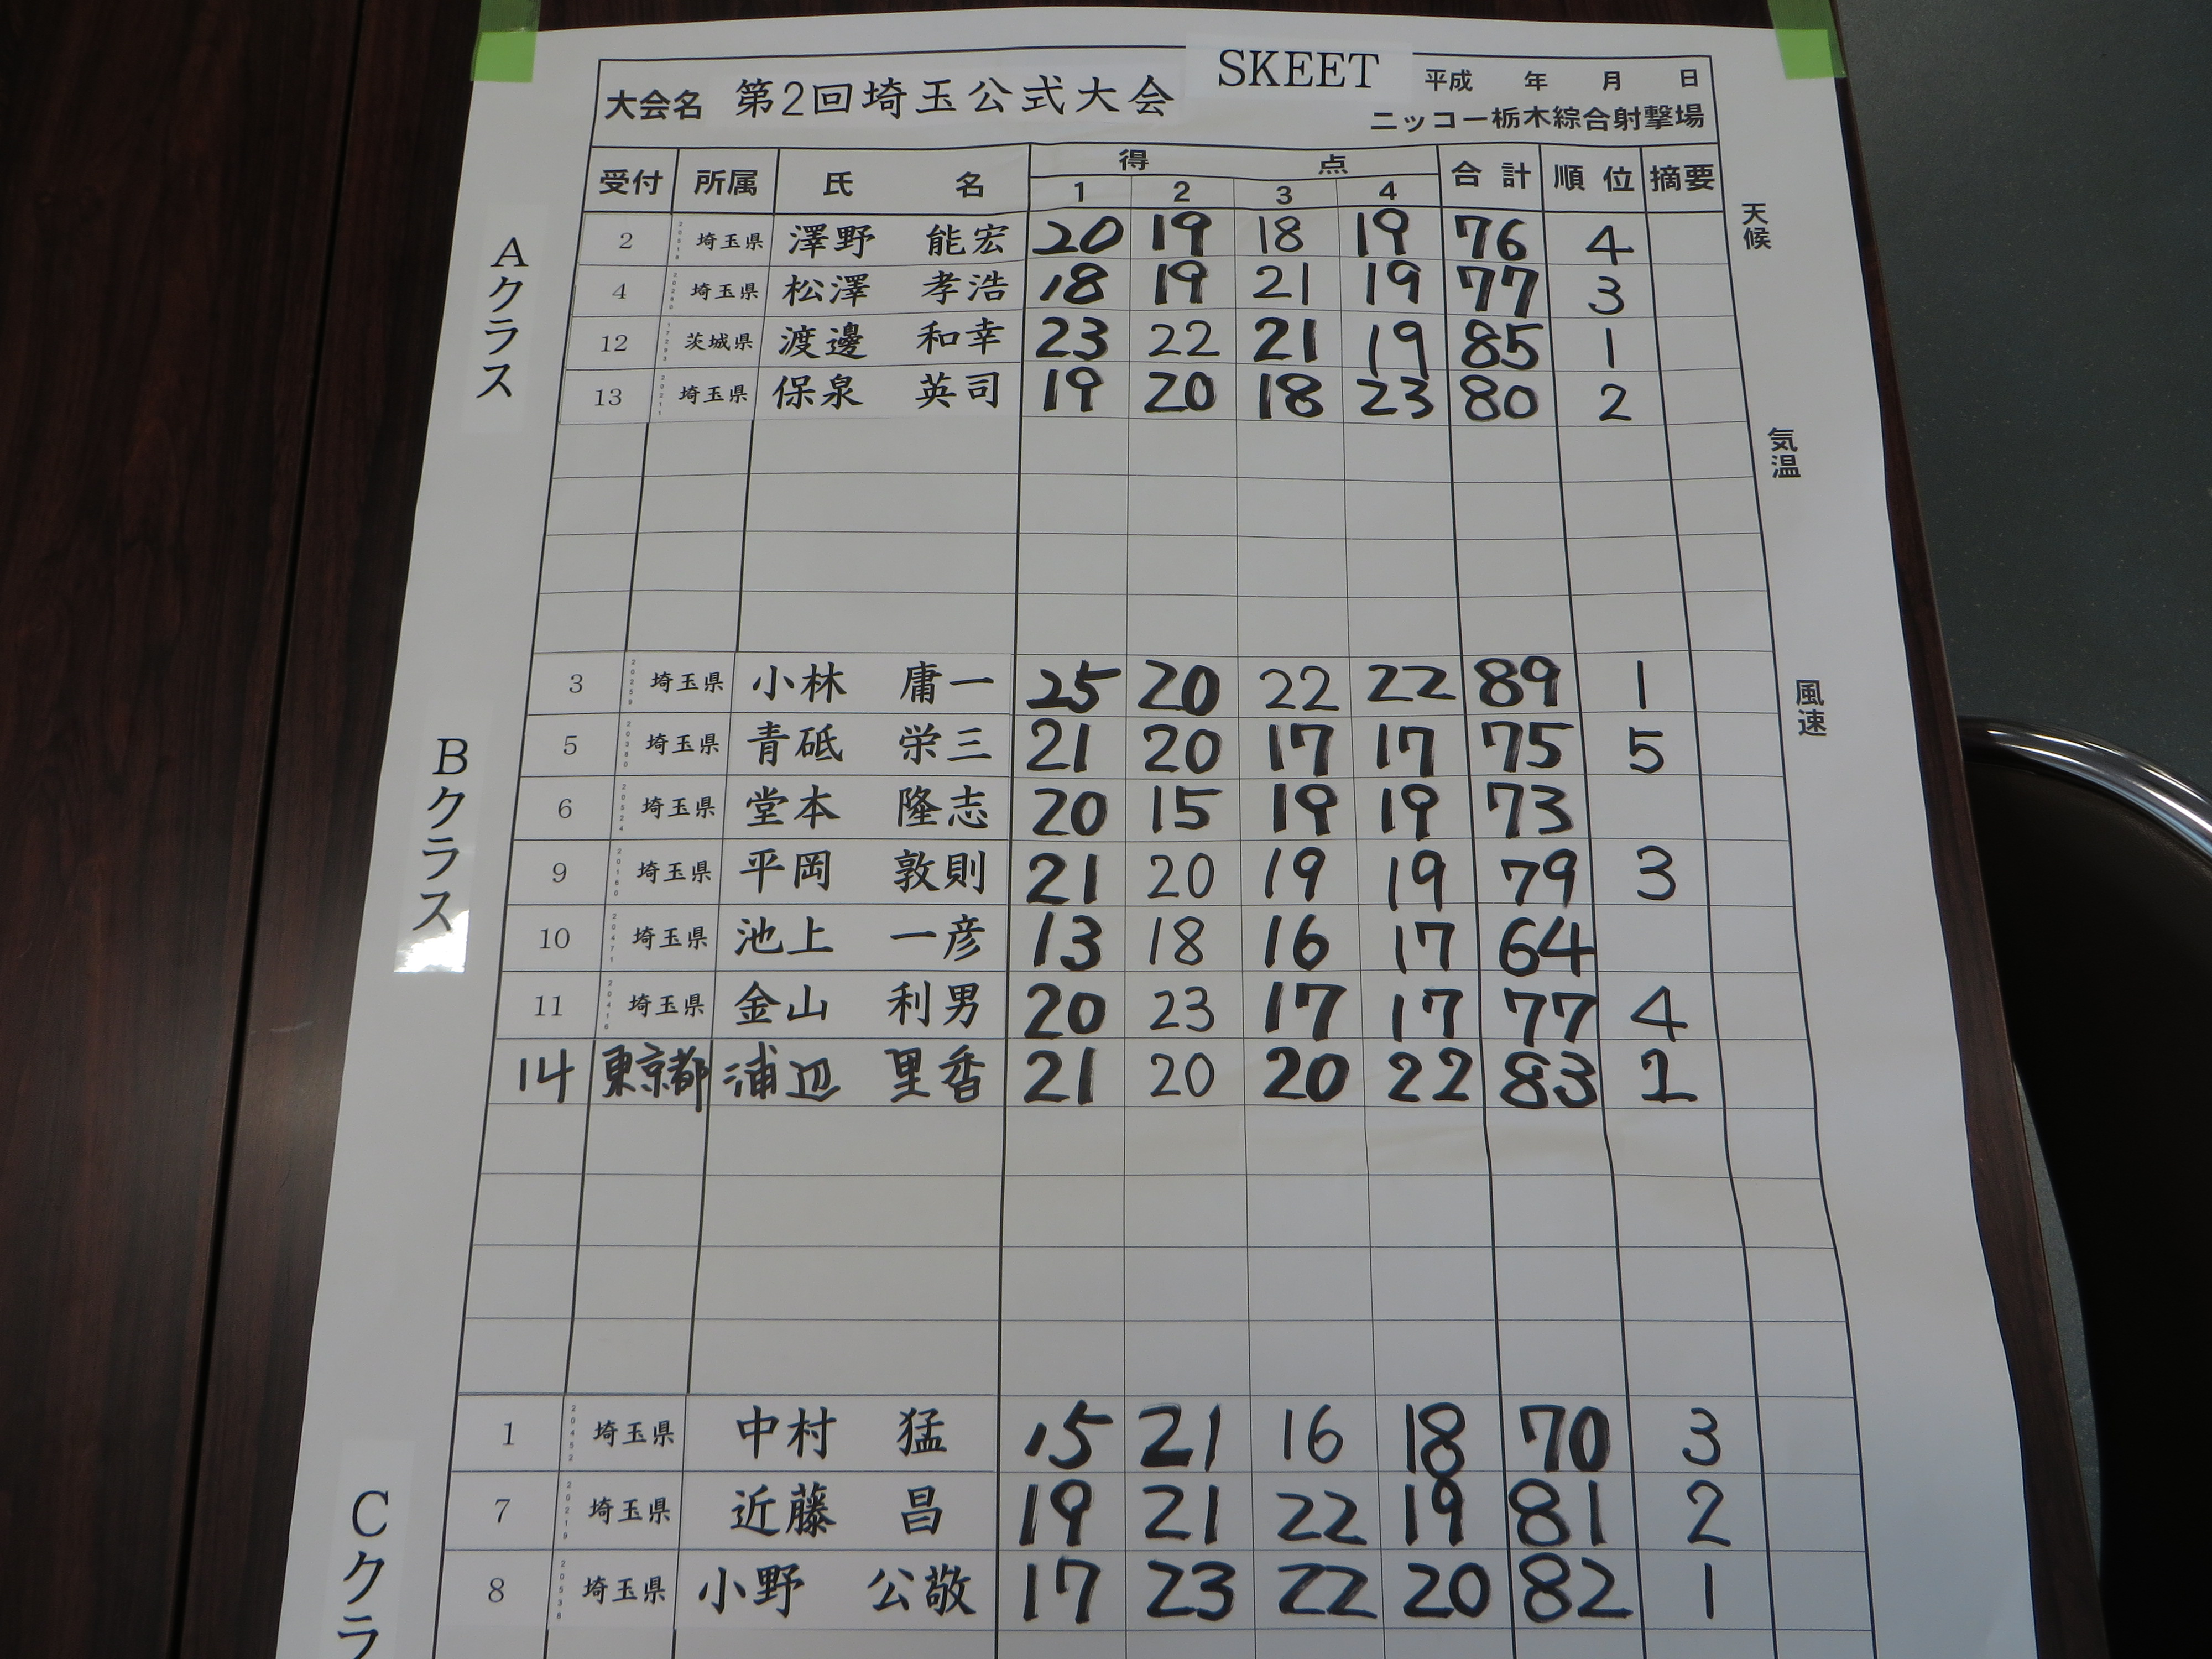 SKEET
大会名 第2回埼玉公式大会 平成 年 月 日
ニッコー栃木綜合射撃場
受付 所属 氏 名 得 点 合 計 順 位 摘要
1 2 3 4
Aクラス
2 埼玉県 澤野 能宏 20 19 18 19 76 4
4 埼玉県 松澤 孝浩 18 19 21 19 77 3
12 茨城県 渡邊 和幸 23 22 21 19 85 1
13 埼玉県 保泉 英司 19 20 18 23 80 2
天候
気温
風速
Bクラス
3 埼玉県 小林 庸一 25 20 22 22 89 1
5 埼玉県 青砥 栄三 21 20 17 17 75 5
6 埼玉県 堂本 隆志 20 15 19 19 73
9 埼玉県 平岡 敦則 21 20 19 19 79 3
10 埼玉県 池上 一彦 13 18 16 17 64
11 埼玉県 金山 利男 20 23 17 17 77 4
14 東京都 浦辺 里香 21 20 20 22 83 2
Cクラ
1 埼玉県 中村 猛 15 21 16 18 70 3
7 埼玉県 近藤 昌 19 21 22 19 81 2
8 埼玉県 小野 公敬 17 23 22 20 82 1